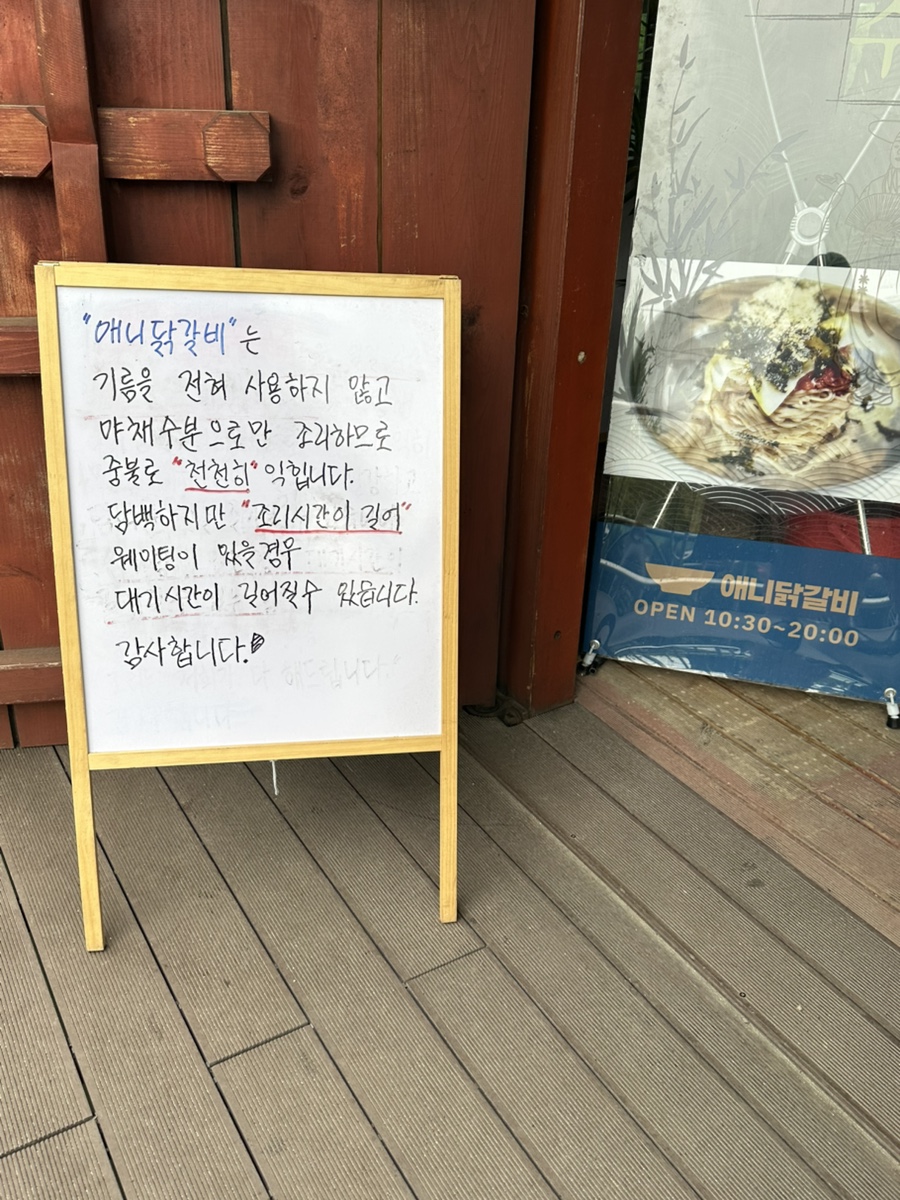 "애니닭갈비"는
기름을 전혀 사용하지 않고
야채수분으로만 조리하므로
중불로 "천천히" 익힙니다.
담백하지만 "조리시간이 길어"
웨이팅이 있을경우
대기시간이 길어질수 있습니다.
감사합니다.
애니닭갈비
OPEN 10:30~20:00